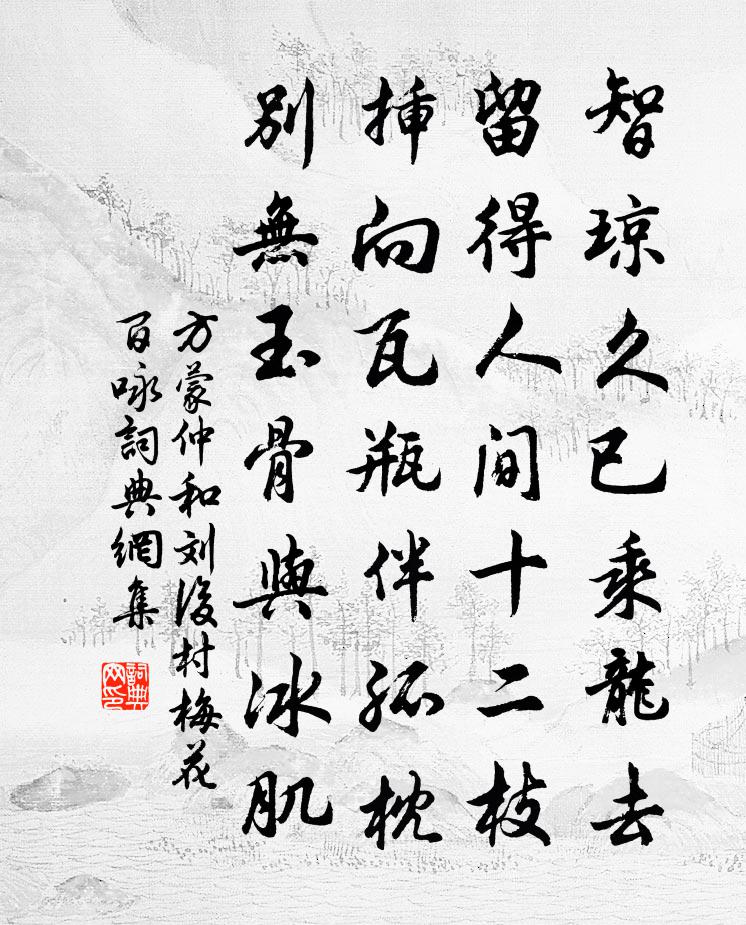 智琼久已乘龍去
留得人间十二枝
挿向瓦瓶伴孤枕
别無玉骨與冰肌
方蒙仲和刘後村梅花
百咏詞典網集
詞典
网印